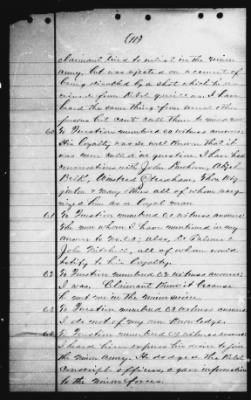 (11)
claimant tried to enlist in the Union
Army but was rejected on account of
being disabled by a shot which he
received from Rebel guerillas. I have
heard the same thing from several other
persons but can't call them to mind now.
60 To Question numbered 60 witness answers:
His loyalty was so well known that it
was never called in question. I have had
conversations with John
all of whom recog-
nized him as a loyal man.
61 To Question numbered 61 witness answers:
The men whom I have mentioned in my
answer to No 60; also,
John all of whom would
testify to his loyalty.
62 To Question numbered 62 witness answers:
I was. Claimant knew it because
he met me in the Union service.
63 To Question numbered 63 witness answers:
I do not of my own knowledge.
64 To Question numbered 64 witness answers:
I heard him express his desire to join
the Union Army. He dodged the Rebel
Conscript officers, & gave information
to the Union forces.